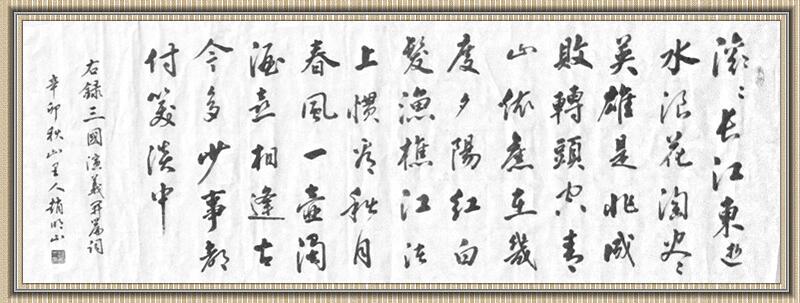 滚々长江東逝
水浪花淘尽
英雄是非成
敗轉頭空青
山依舊在幾
度夕陽紅白
髮漁樵江渚
上慣看秋月
春風一壺濁
酒喜相逢古
今多少事都
付笑談中
右録三國演義開篇詞
辛卯秋山里人趙明山